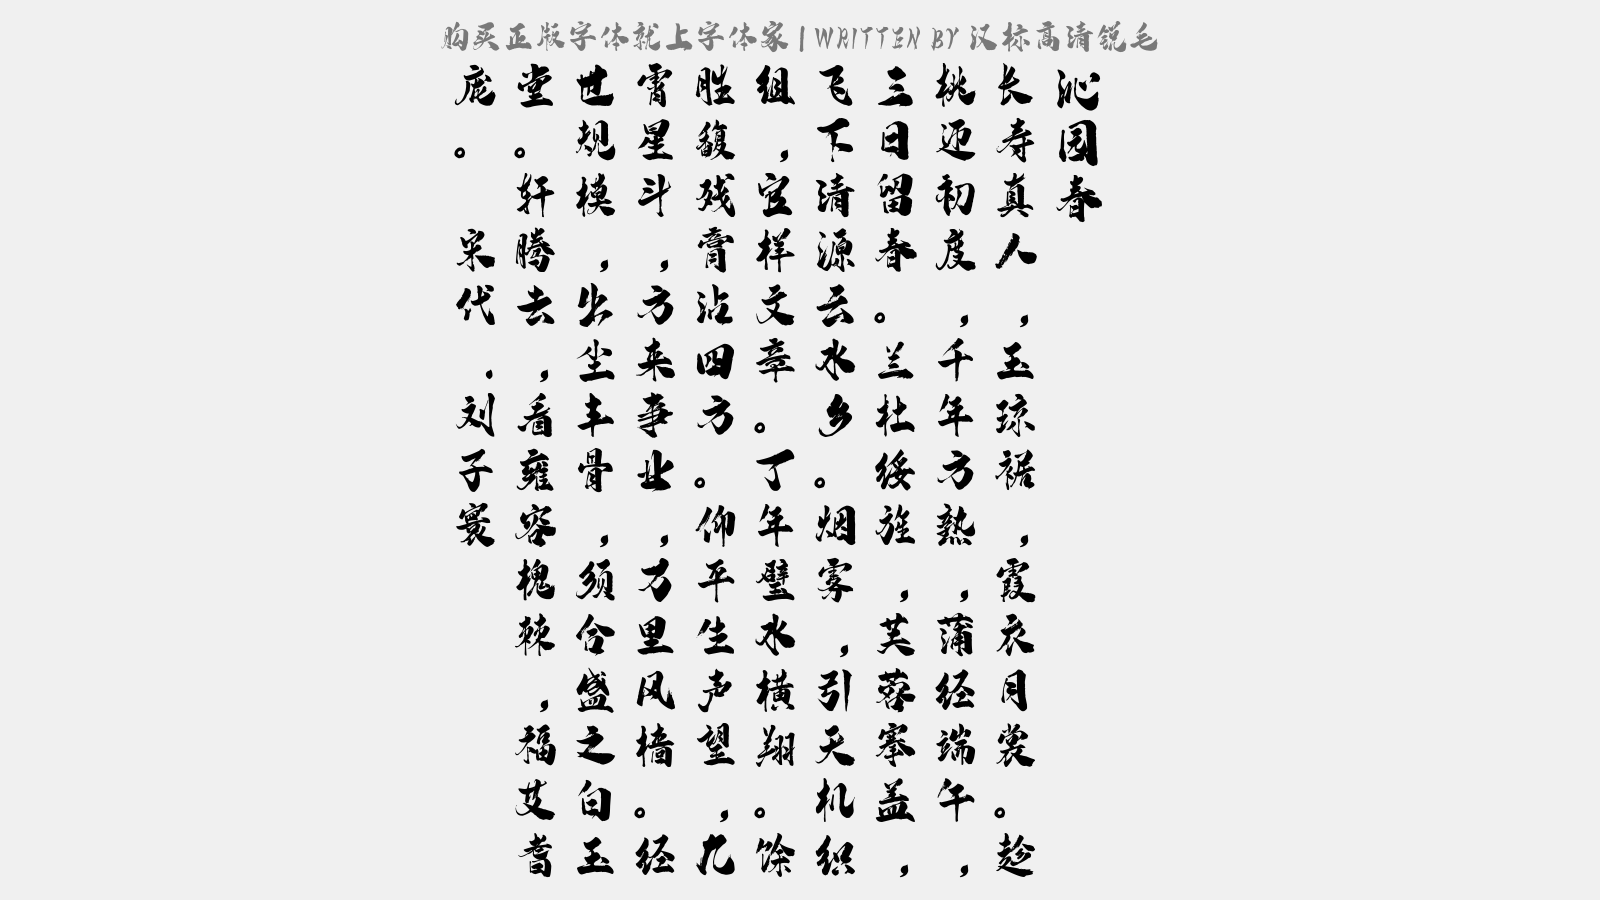 购买正版字体就上字体家 | WRITTEN BY 汉标高清锐毛
沁园春
长寿真人，玉琼裾，霞衣月裳。趁
桃迎初度，千年方熟，蒲经端午，
三日留春。兰杜绥旌，芙蓉搴盖，
飞下清源云水乡。烟雾，引天机织
组，宫样文章。丁年璧水横翔。馀
胜馥残膏沾四方。仰平生声望，九
霄星斗，方来事业，万里风樯。经
世规模，出尘丰骨，须合盛之白玉
堂。轩腾去，看雍容槐棘，福艾耆
庞。宋代．刘子寰